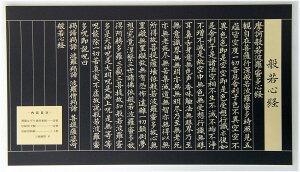 般若心経
摩訶般若波羅蜜多心経
観自在菩薩行深般若波羅蜜多時照見五
蘊皆空度一切苦厄舎利子色不異空空不
異色色即是空空即是色受想行識亦復如
是舎利子是諸法空相不生不滅不垢不浄
不増不減是故空中無色無受想行識無眼
耳鼻舌身意無色声香味触法無眼界乃至
無意識界無無明亦無無明尽乃至無老死
亦無老死尽無苦集滅道無智亦無得以無
所得故菩提薩埵依般若波羅蜜多故心無
罣礙無罣礙故無有恐怖遠離一切顛倒夢
想究竟涅槃三世諸仏依般若波羅蜜多故
得阿耨多羅三藐三菩提故知般若波羅蜜
多是大神呪是大明呪是無上呪是無等等
呪能除一切苦真実不虚故説般若波羅蜜
多呪即説呪曰
羯諦羯諦波羅羯諦波羅僧羯諦菩提薩婆訶
般若心経